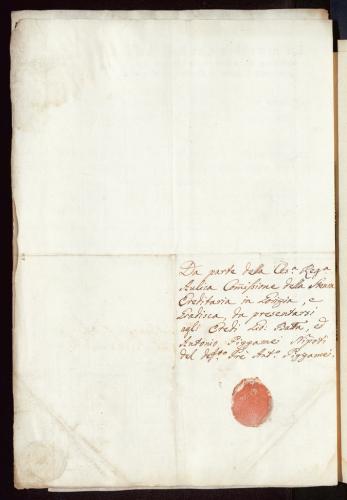 Da parte della Ces.ª Rega
Aulica Comissione della
Creditaria in Gorizia, e
Gradisca, da presentarsi
agli Eredi Batta, ed
Antonio Nipoti
del def.to Pre Ant.o